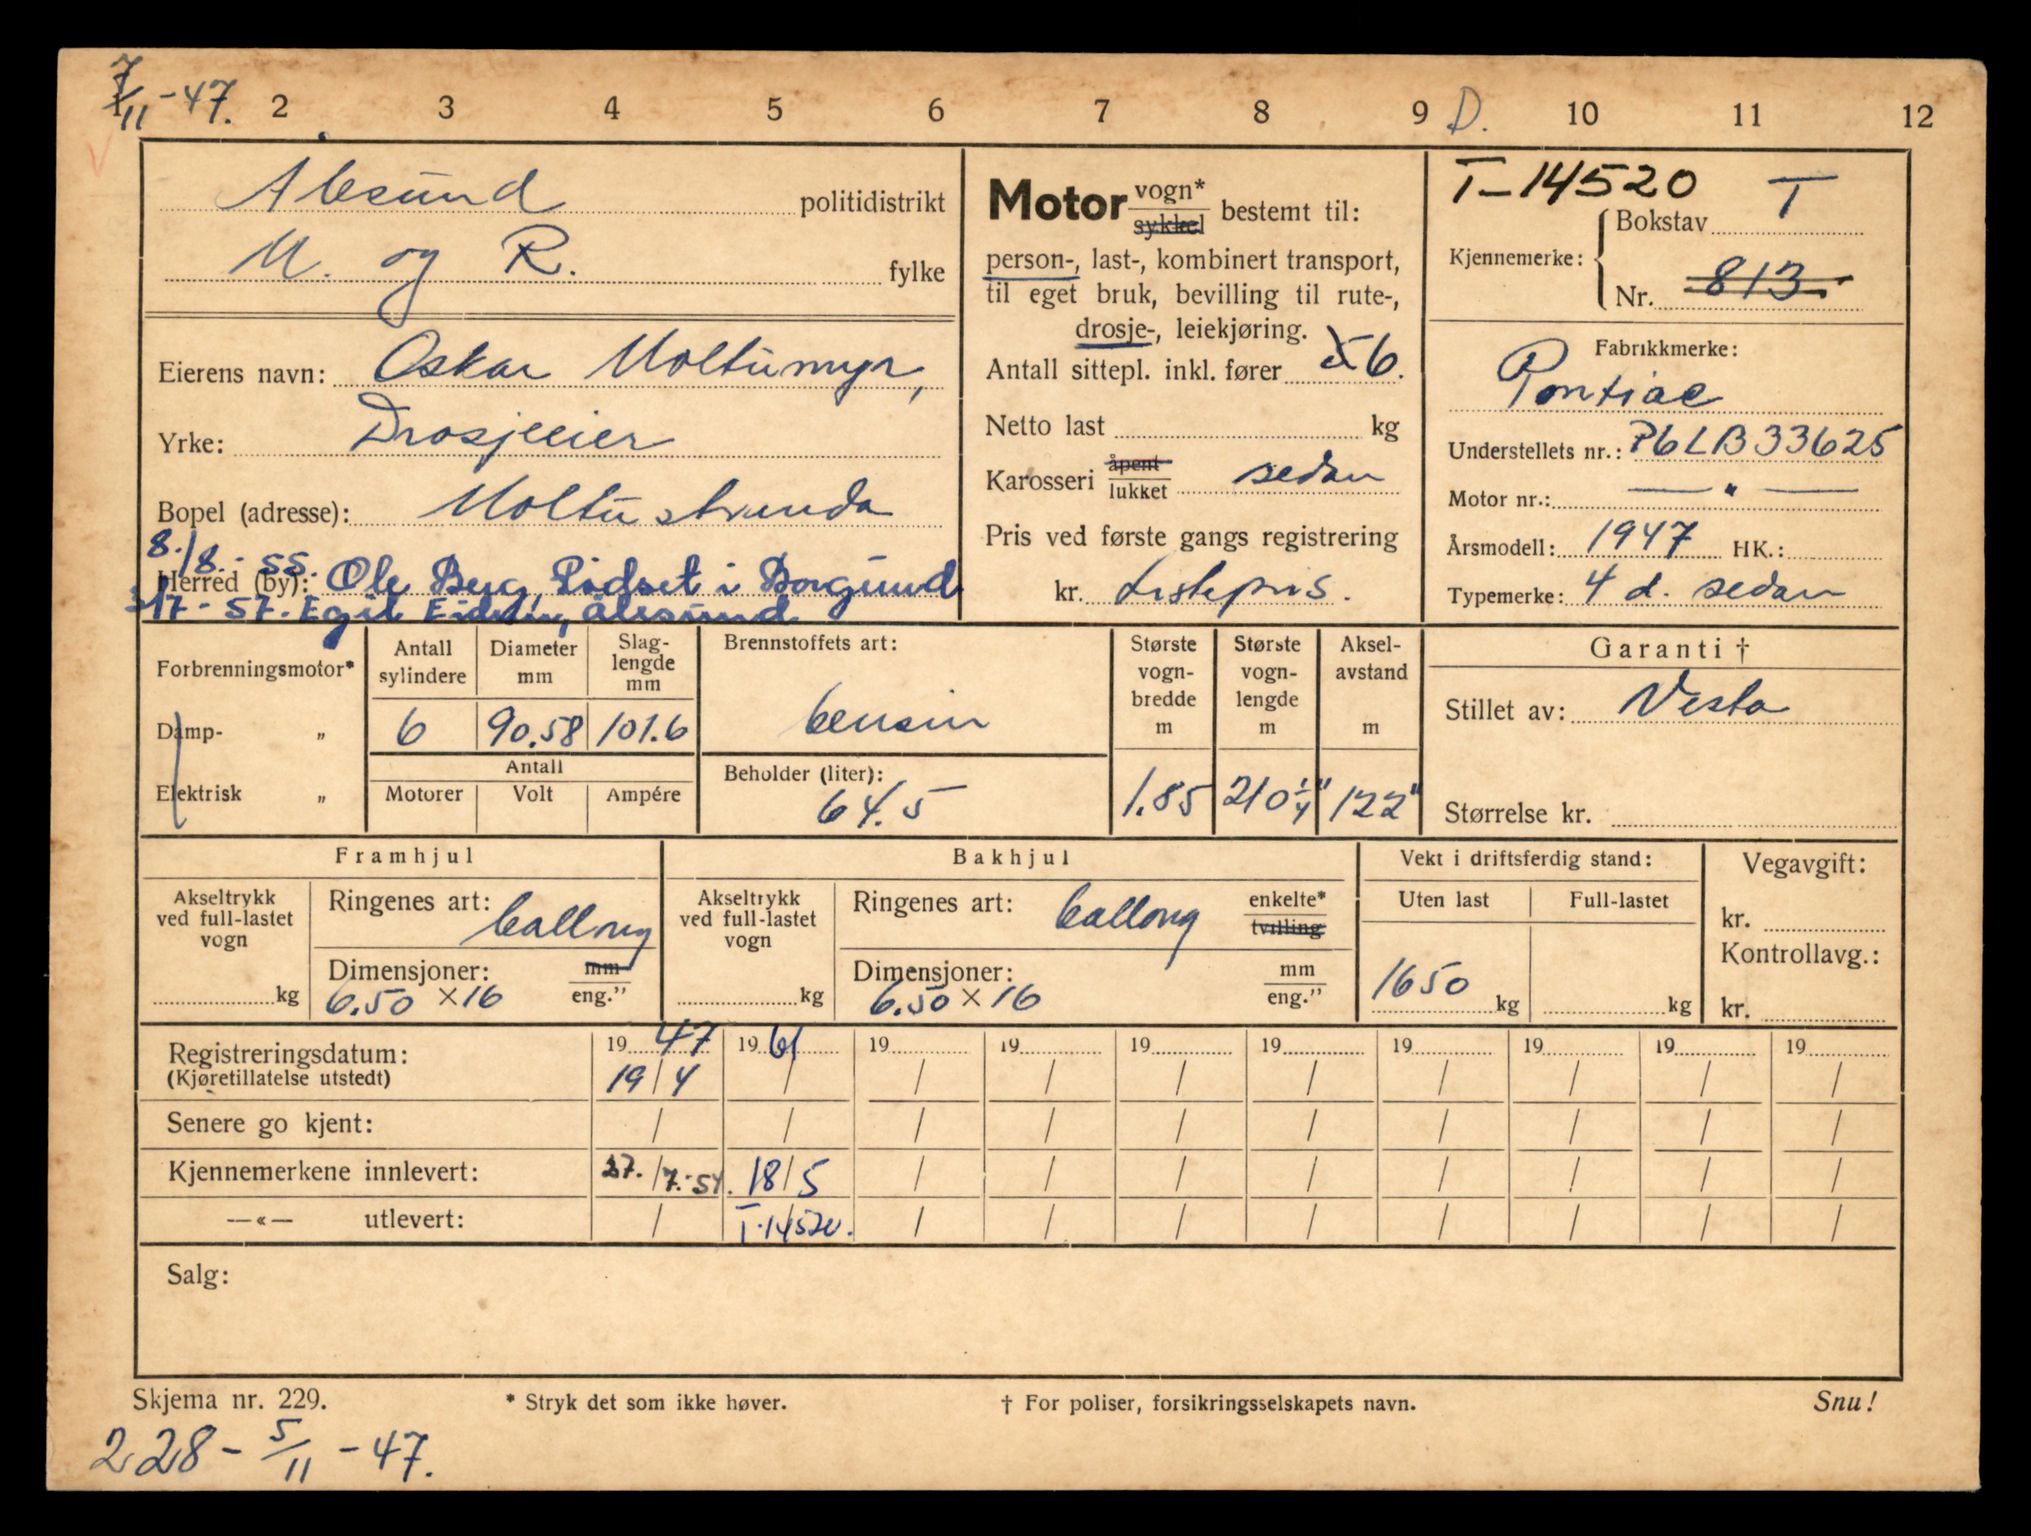 7/11 - 47.
2 3 4 5 6 7 8 9 D. 10 11 12
Alesund politidistrikt
M. og R. fylke
Eierens navn: Oskar Moltumyr,
Yrke: Drosjeeier
Bopel (adresse): Moltustranda
8./8. - 55.
Herred (by): Ole Berg, Pidset i Borgund
17 - 57. Egil Ålesund
Motor vogn* sykkel bestemt til:
person-, last-, kombinert transport,
til eget bruk, bevilling til rute-,
drosje-, leiekjøring.
Antall sittepl. inkl. fører 5 6.
Netto last kg
Karosseri åpent lukket sedan
Pris ved første gangs registrering
kr. Listepris.
T-14520
Kjennemerke: Bokstav T
Nr. 813
Fabrikkmerke:
Pontiac
Understellets nr.: P6LB33625
Motor nr.: — " —
Årsmodell: 1947 HK.:
Typemerke: 4 d. sedan
Forbrenningsmotor*
Damp- „
Elektrisk „
Antall sylindere
6
Diameter mm
90.58
Slag-lengde mm
101.6
Antall
Motorer Volt Ampére
Brennstoffets art:
bensin
Beholder (liter):
64.5
Største vogn-bredde m
1.85
Største vogn-lengde m
210 1/4"
Aksel-avstand m
122"
Garanti †
Stillet av: Vesta
Størrelse kr.
Framhjul
Akseltrykk ved full-lastet vogn
kg
Ringenes art: ballong
Dimensjoner: mm eng."
6.50 × 16
Bakhjul
Akseltrykk ved full-lastet vogn
kg
Ringenes art: ballong enkelte* tvilling
Dimensjoner: mm eng."
6.50 × 16
Vekt i driftsferdig stand:
Uten last Full-lastet
1650 kg kg
Vegavgift:
kr.
Kontrollavg.:
kr.
Registreringsdatum: 19 47 19 61 19 19 19 19 19 19 19 19
(Kjøretillatelse utstedt) 19 / 4 / / / / / / / / /
Senere go kjent: / / / / / / / / / /
Kjennemerkene innlevert: 27. / 7.-54. 18 / 5 / / / / / / / /
—«— utlevert: / T-14520. / / / / / / / /
Salg:
Skjema nr. 229. * Stryk det som ikke høver. † For poliser, forsikringsselskapets navn. Snu!
228 - 5/11 - 47.